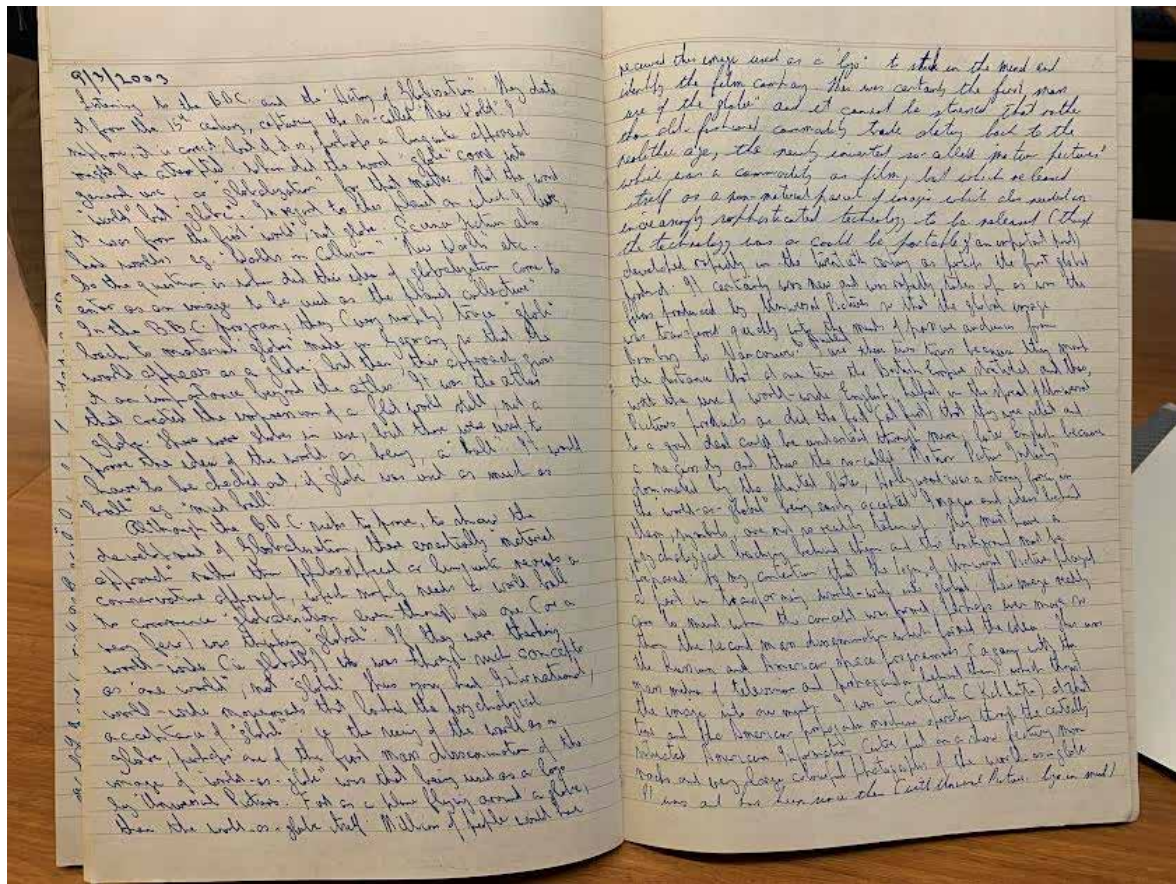 9/3/2003
Listening to the B.B.C. and the "History of Globalisation". They date
it from the 15th century, capturing the so-called "New World". I
suppose, it is correct, but perhaps a linguistic approach
might be attempted. When did the word "globe" come into
general use, or "globalization" for that matter. Not the word
"world" but "globe". In regard to this planet on which I live,
it was from the first "world", not globe. Science fiction also
had worlds, eg. "Worlds in Collision" "New Worlds" etc.
So the question is when did this idea of globalization come to
enter as an image to be used as the planet collective"
In the B.B.C. program, they (very simply) trace "globe"
back to material globes made in Germany so that the
world appears as a globe, but then, this approach gives
it an importance beyond the atlas. It was the atlas
that created the impression of a flat world still, not a
globe. There were globes in use, but these were used to
prove the idea of the world as being, a "ball". It would
have to be checked out, if "globe" was used as much as
"ball" as "mud ball".
Although the B.B.C. seeks to prove, to show the
development of Globalisation, their essentially material
approach rather than philosophical or linguistic reveals a
conservative approach, which simply needs a world ball
to commence globalization even though no one (or a
very few) was thinking "global". If they were thinking
world-wide (ie globally) it was through such concepts
as "one world", not "global". Thus you had International,
world-wide movements that lacked the psychological
acceptance of "global", ie the seeing of the world as a
globe, perhaps one of the first mass dissemination of the
image of "world-as-globe" was that being used as a logo
by Universal Pictures. First as a plane flying around a globe,
then the world-as-globe itself. Millions of people would have
received this image used as a "logo" to stick in the mind and
identify the film company. This was certainly the first, mass
use of the "globe" and it cannot be stressed that rather
than old-fashioned commodity trade dating back to the
neolithic age, the newly invented so-called "motion pictures"
which was a commodity as film, but which released
itself as a non-material parcel of images which also needed an
increasingly sophisticated technology to be released (though
the technology was or could be portable, an important part)
developed rapidly in the twentieth century as perhaps the first global
product. It certainly was new and was rapidly taken up as were the
films produced by Universal Pictures so that the global image
was transferred quickly into the minds of passive audiences from
Bombay to Vancouver. I use these two towns because they meant
the distance that at one time the British Empire stretched and thus,
with the use of world-wide English, helped in the spread of Universal
Pictures products as did the fact (at first) that they were silent and
to a great deal could be understood through mime, later English became
a necessity and thus the so-called "Motion Picture Industry"
dominated by the United States, Hollywood was a strong force in
the world-as-"global" being easily accepted. Images and ideas behind
them, symbols, are not so readily taken up. They must have a
psychological backing behind them and this background must be
prepared. It is my contention that the logo of Universal Pictures played
a part in transforming world-wide into global. This image readily
came to mind when the concept was formed. Perhaps even more so
than the second mass dissemination which formed the idea. This was
the Russian and American space programmes (again with the
mass media of television and propaganda behind them) which thrust
the image into our minds. I was in Calcutta (Kolkata) at that
time and the American propaganda machine operating through the centrally
situated American Information Centre put on a show featuring moon
rocks and very large colourful photographs of the world-as-globe.
It was and has been since then (with Universal Pictures logo in mind)